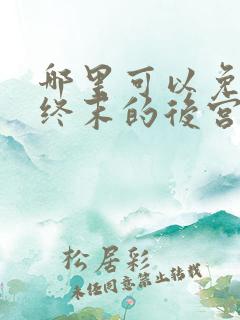 哪里可以免
终末的後宫
松居彩
未经同意禁止转载